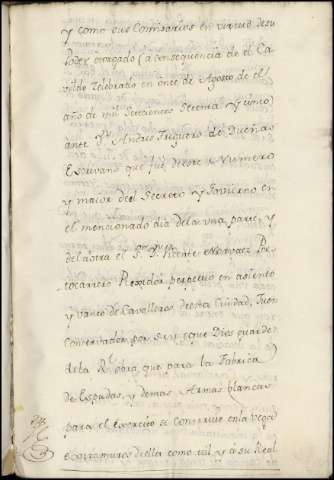 y como sus Comisarios en virtud de su
Poder otorgado (a consequencia de el Ca
vildo Zelebrado en once de Agosto de el
año de mil Setecientos Setenta y uno
ante Dn Andres Triguero de Dueñas
Escrivano que fue de este Numero
y maior de el Secreto y Govierno en
el mencionado dia de la una parte, y
de la otra el Sr Dn Vicente Narvaez Por
tocarrero Rexidor perpetuo en asiento
y vanco de Cavalleros de esta Ciudad, Juez
Conservador por S. M. que Dios guarde
de la Rl obra, que para la Fabrica
de Espadas, y demas Armas blancas
para el Exercito se construie en la vega
extramuros de ella como util y a su Real